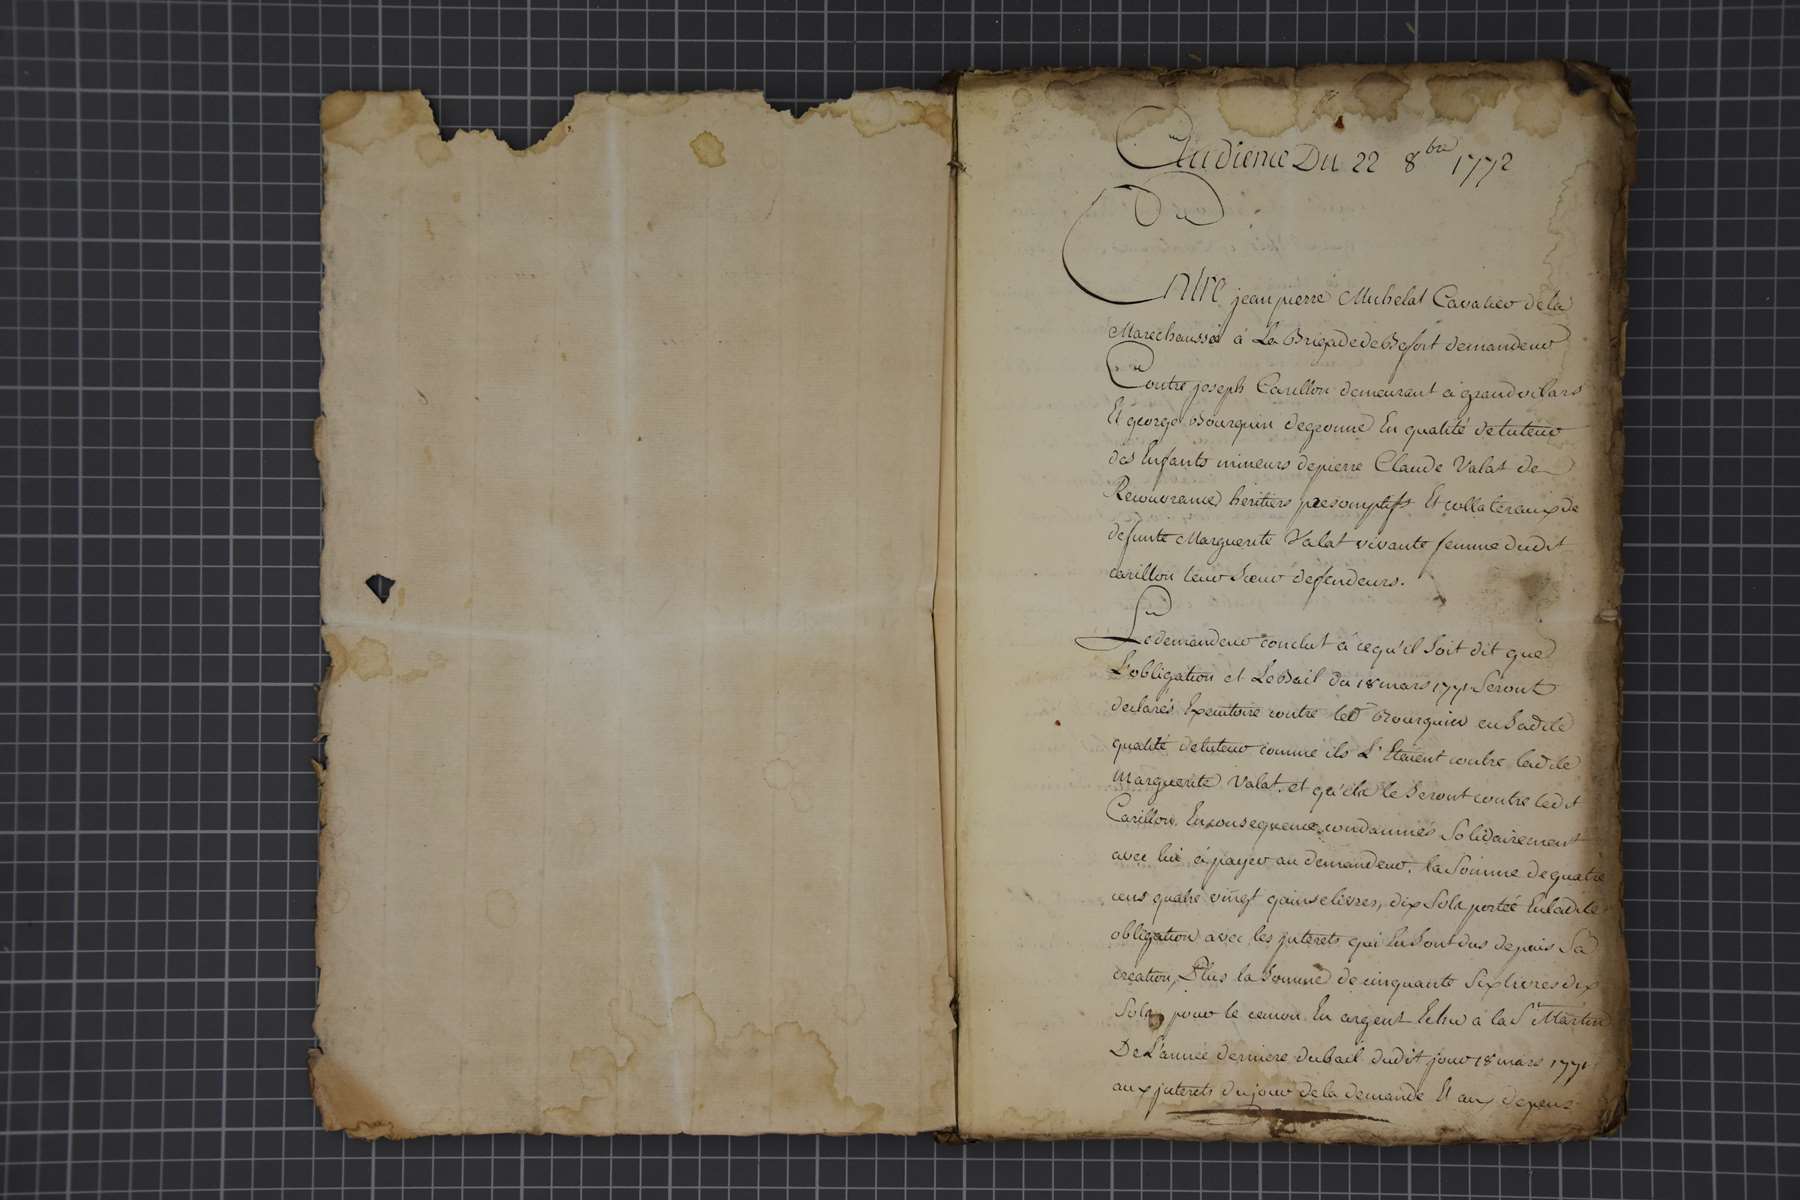 Audience Du 22 8bre 1772
Entre jean pierre Michelat Cavalier de la
Marechaussée à La Brigade de Befort demandeur
Contre joseph Carillon demeurant à grandvilars
Et george Bourquin degronne En qualité de tuteur
des Enfants mineurs de pierre Claude Valat de
Recouvrance, héritiers presomptifs Et collateraux de
defunte Marguerite Valat vivante femme dudit
carillon leur soeur défendeurs.
Le demandeur conclut à ce qu'il soit dit que
L'obligation et Le Bail du 18 mars 1771 Seront
declarés Executoire contre led.t Bourquin en sadite
qualité de tuteur comme ils L'Etoient contre ladite
Marguerite Valat. et qu'ils le seront contre ledit
Carillon. En consequence condamnés Solidairement
avec lui à payer au demandeur, la Somme de quatre
cens quatre vingt quinse livres, dix Sols portée En ladite
obligation avec les jnterets qui En sont dus depuis Sa
création, Plus la somme de cinquante Six livres dix
Sols pour le canon En argent Echu à la St Martin
De L'année derniere du bail dudit jour 18 mars 1771
aux jnterets du jour de la demande Et aux depens